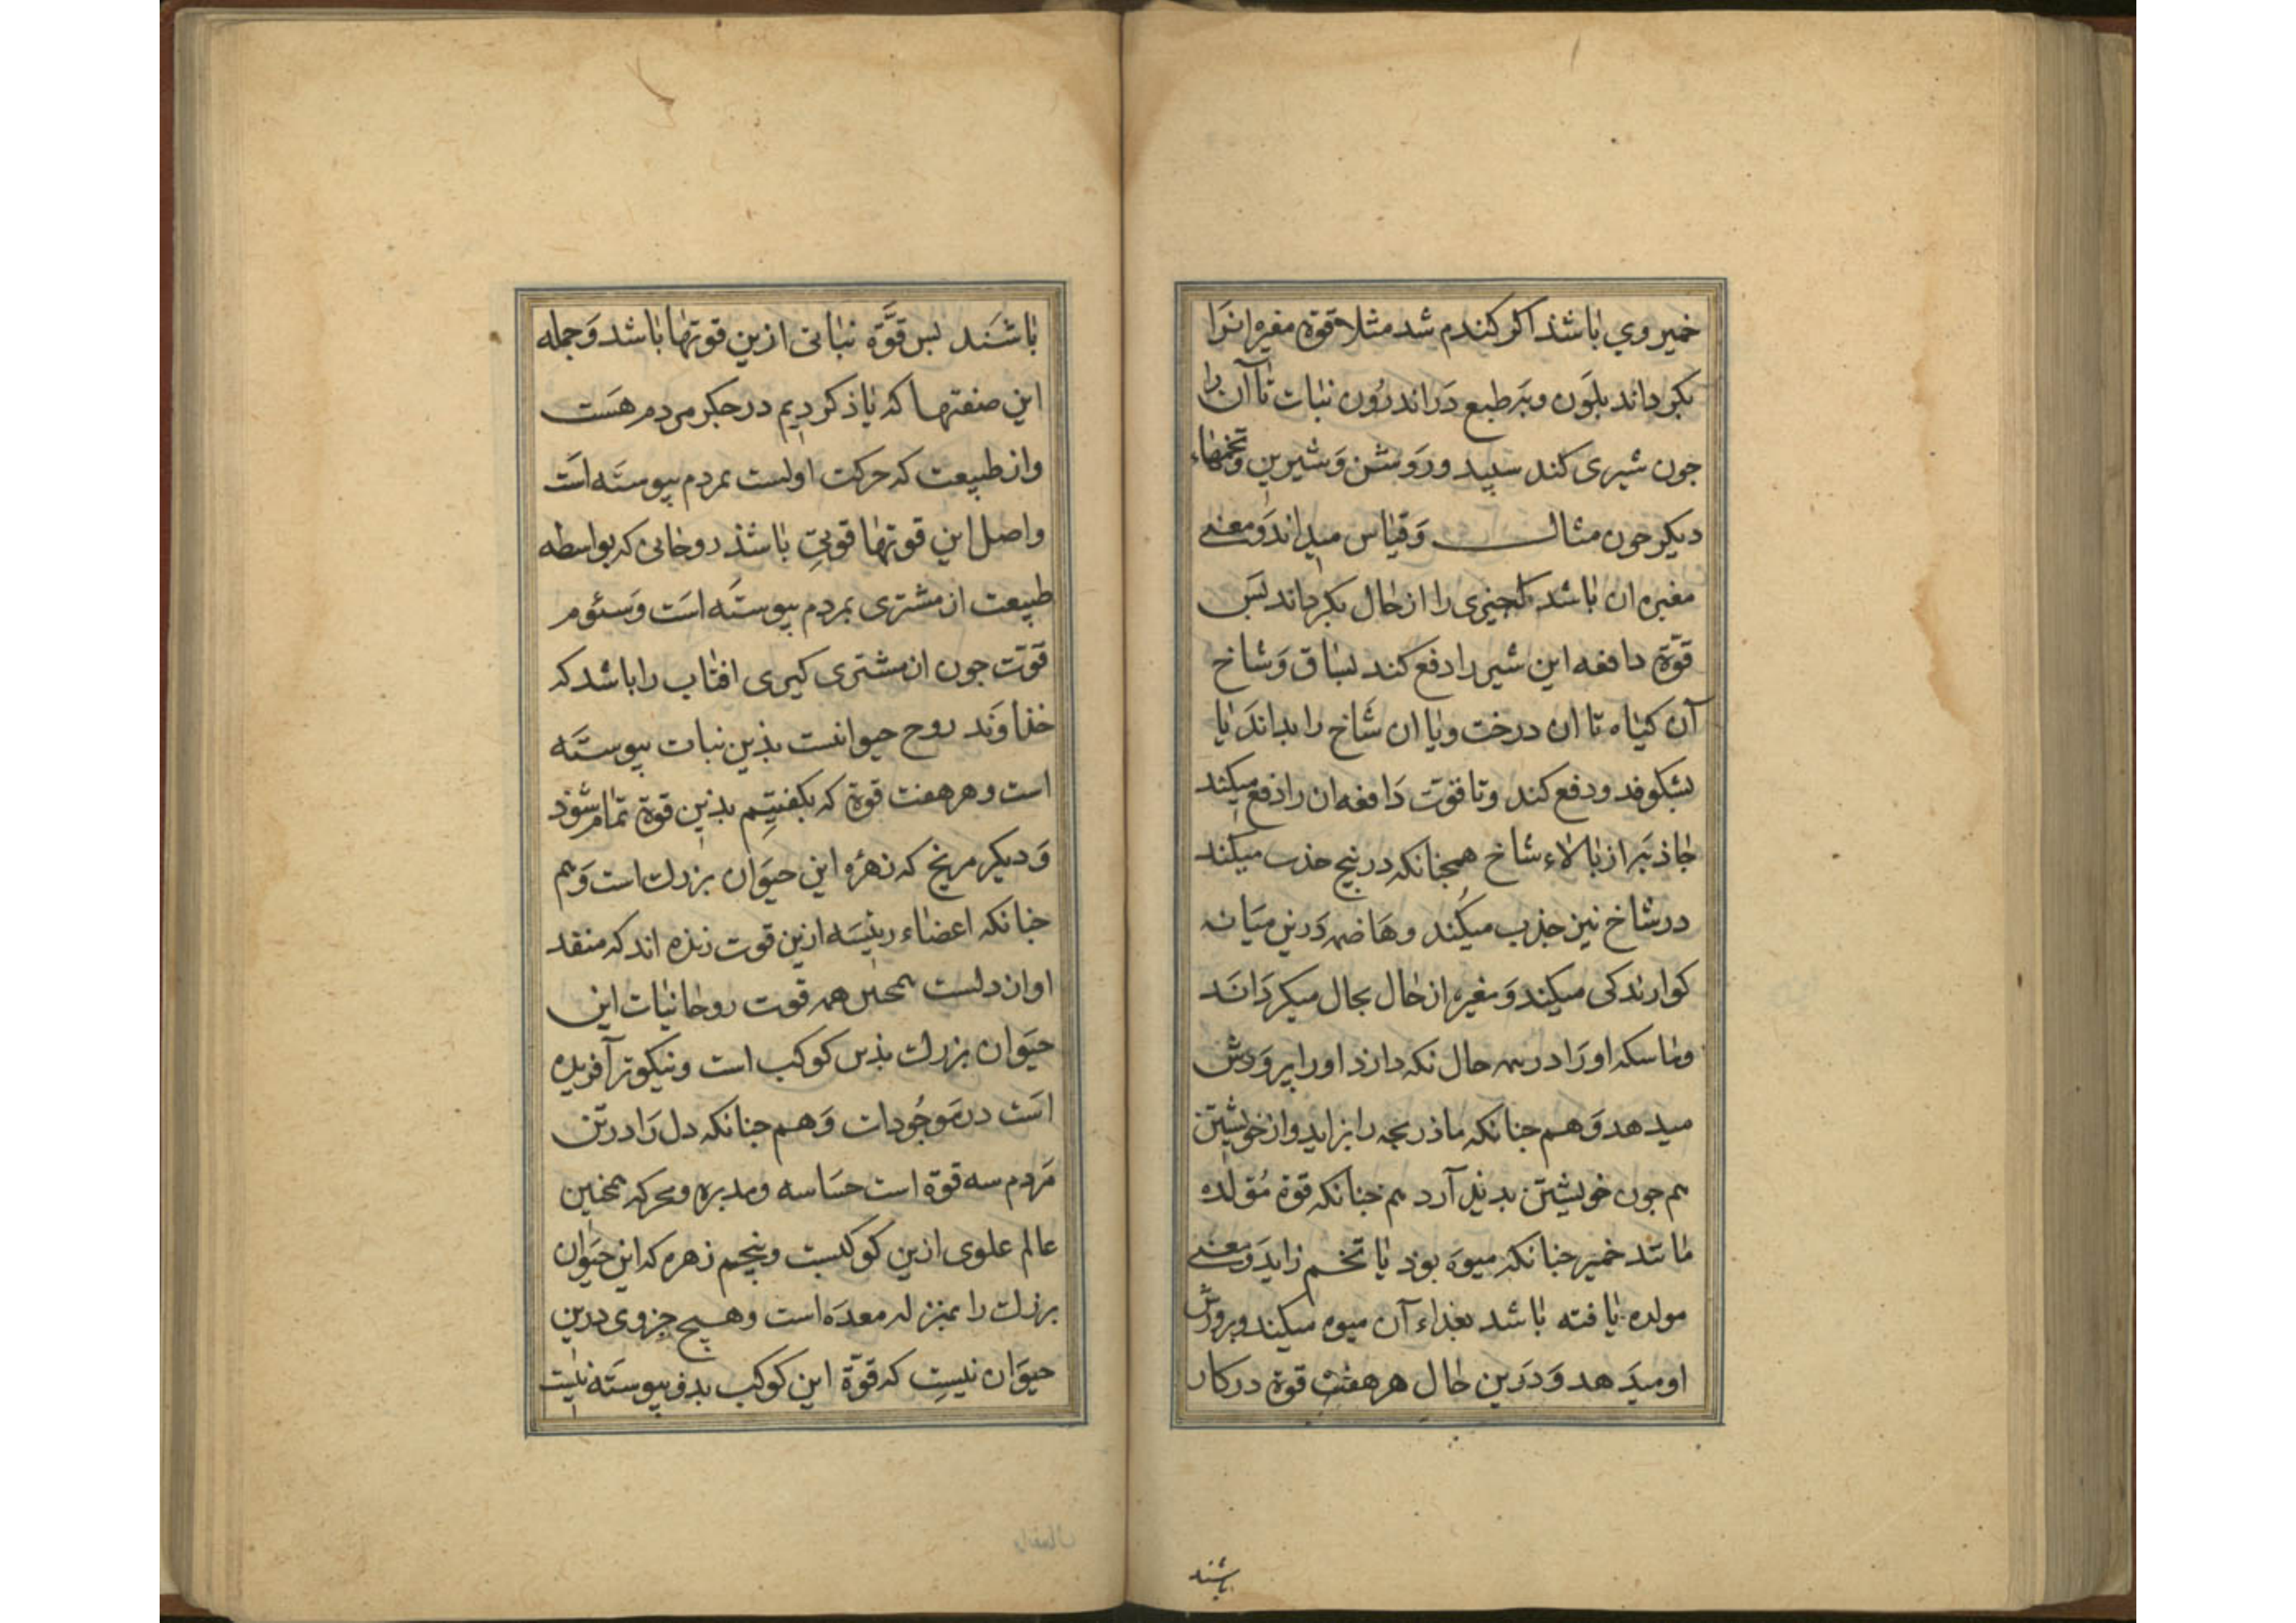 خمیر وی باشذ اکر کندم شد مثلا قوة مغیره انرا
بکرداند بلون وبر طبع در اندرون نبات تا آن را
جون شیری کند سبید وروشن وشیرین وتخمهاء
دیکر جون مثال وقیاس میداند ومعنی
مغیره ان باشد که جیزی را از حال بکرداند بس
قوة دافعه این شیر را دفع کند بساق وشاخ
آن کیاه تا ان درخت ویا ان شاخ را بداند یا
بشکوفد ودفع کند وتا قوت دافعه ان را دفع میکند
جاذبه از بالاء شاخ همجنانکه در بیخ جذب میکند
در شاخ نیز جذب میکند وهاضمه درین میانه
کوارندکی میکند ومغیره از حال بحال میکرداند
وماسکه او را در همه حال نکه دارذ او را پرورش
میدهد وهم جنانکه ماذر بجه را بزاید واز خویشتن
هم جون خویشتن بدید آرد هم جنانکه قوة مولده
مانند خمیر جنانکه میوه بوذ یا تخم زاید ومعنی
مولده یافته باشد بغذاء آن میوه میکند وپرورش
او میدهد ودرین حال هر هفت قوة در کار
باشند
باشند بس قوّة نباتی ازین قوتها باشد وجمله
این صنعتها که یاذ کردیم در جکر مردم هست
واز طبیعت که حرکت اولست بمردم پیوسته است
واصل این قوتها قوتی باشذ روحانی که بواسطه
طبیعت از مشتری بمردم پیوسته است وسئوم
قوّت جون از مشتری کیری افتاب را باشد که
خذاوند روح حیوانست بذین نبات پیوسته
است وهر هفت قوة که بکفتیم بذین قوة تمام شوذ
ودیکر مریخ که زهره این حیوان بزرك است وهم
جنانکه اعضاء رئیسه ازین قوت زنده اند که منفذ
او ان دلست همجنین همه قوت روحانیات این
حیوان بزرك بذین کوکب است ونیکوتر آفریده
است در موجودات وهم جنانکه دل را در تن
مردم سه قوة است حساسه ومدبره ومحرکه همجنین
عالم علوی ازین کوکبست وپنجم زهره که این حیوان
بزرك را بمنزله معده است وهیچ جزوی درین
حیوان نیست که قوّة این کوکب بدو پیوسته نیست